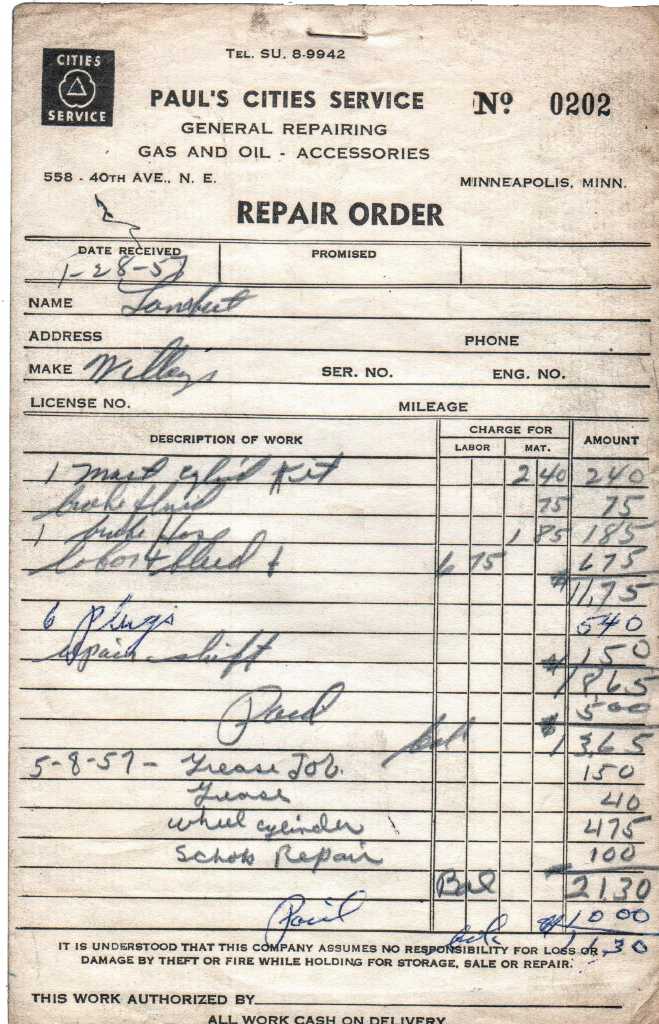 CITIES
SERVICE
TEL. SU. 8-9942
PAUL'S CITIES SERVICE
Nº 0202
GENERAL REPAIRING
GAS AND OIL - ACCESSORIES
558 - 40TH AVE., N. E. MINNEAPOLIS, MINN.
REPAIR ORDER
DATE RECEIVED PROMISED
1-28-57
NAME Lambert
ADDRESS PHONE
MAKE Willeys SER. NO. ENG. NO.
LICENSE NO. MILEAGE
DESCRIPTION OF WORK CHARGE FOR AMOUNT
LABOR MAT.
1 mast cylind Kit 2 40 240
brake fluid 75 75
1 brake Hose 1 85 185
labor & bleed 6 75 675
# 11,75
6 plugs 540
repair shift 150
# 18,65
Paid 500
bal $ 13,65
5-8-57 - Grease Job. 150
Grease 40
wheel cylinder 475
Schok Repair 100
Bal 21,30
Paid # 10 00
bal. 11,30
IT IS UNDERSTOOD THAT THIS COMPANY ASSUMES NO RESPONSIBILITY FOR LOSS OR
DAMAGE BY THEFT OR FIRE WHILE HOLDING FOR STORAGE, SALE OR REPAIR.
THIS WORK AUTHORIZED BY
ALL WORK CASH ON DELIVERY